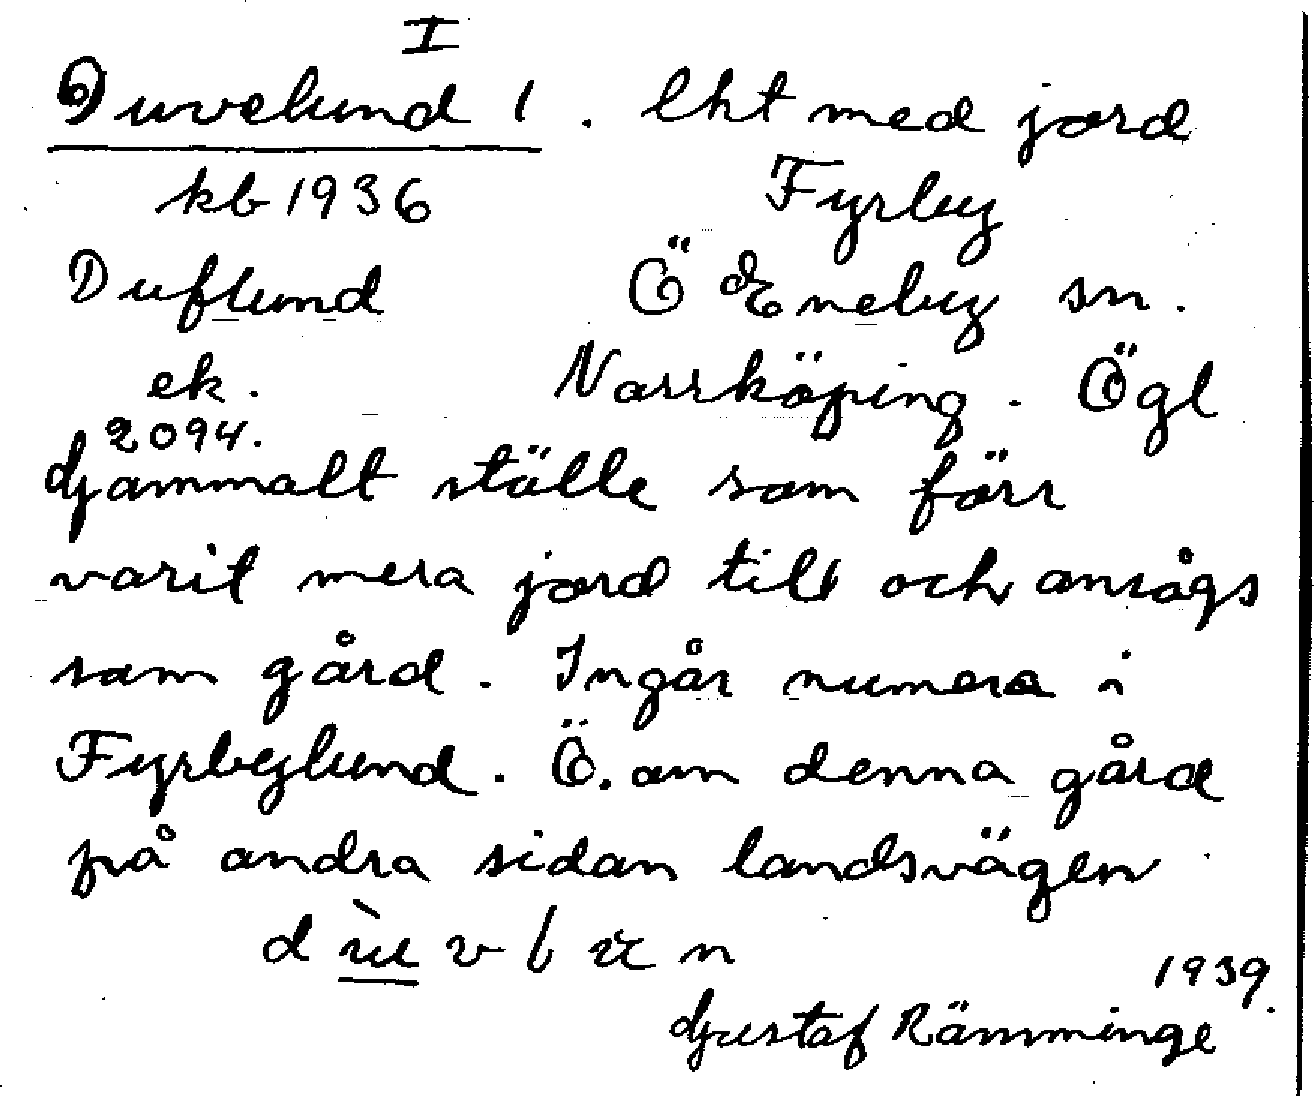 I
Duvelund 1. lht med jord
kb 1936 Fyrby
Duflund Ö Eneby sn.
ek. Norrköping. Ögl
2094.
Gammalt ställe som förr
varit mera jord till och ansågs
som gård. Ingår numera i
Fyrbylund. Ö. om denna gård
på andra sidan landsvägen
1939.
Gustaf Rämminge